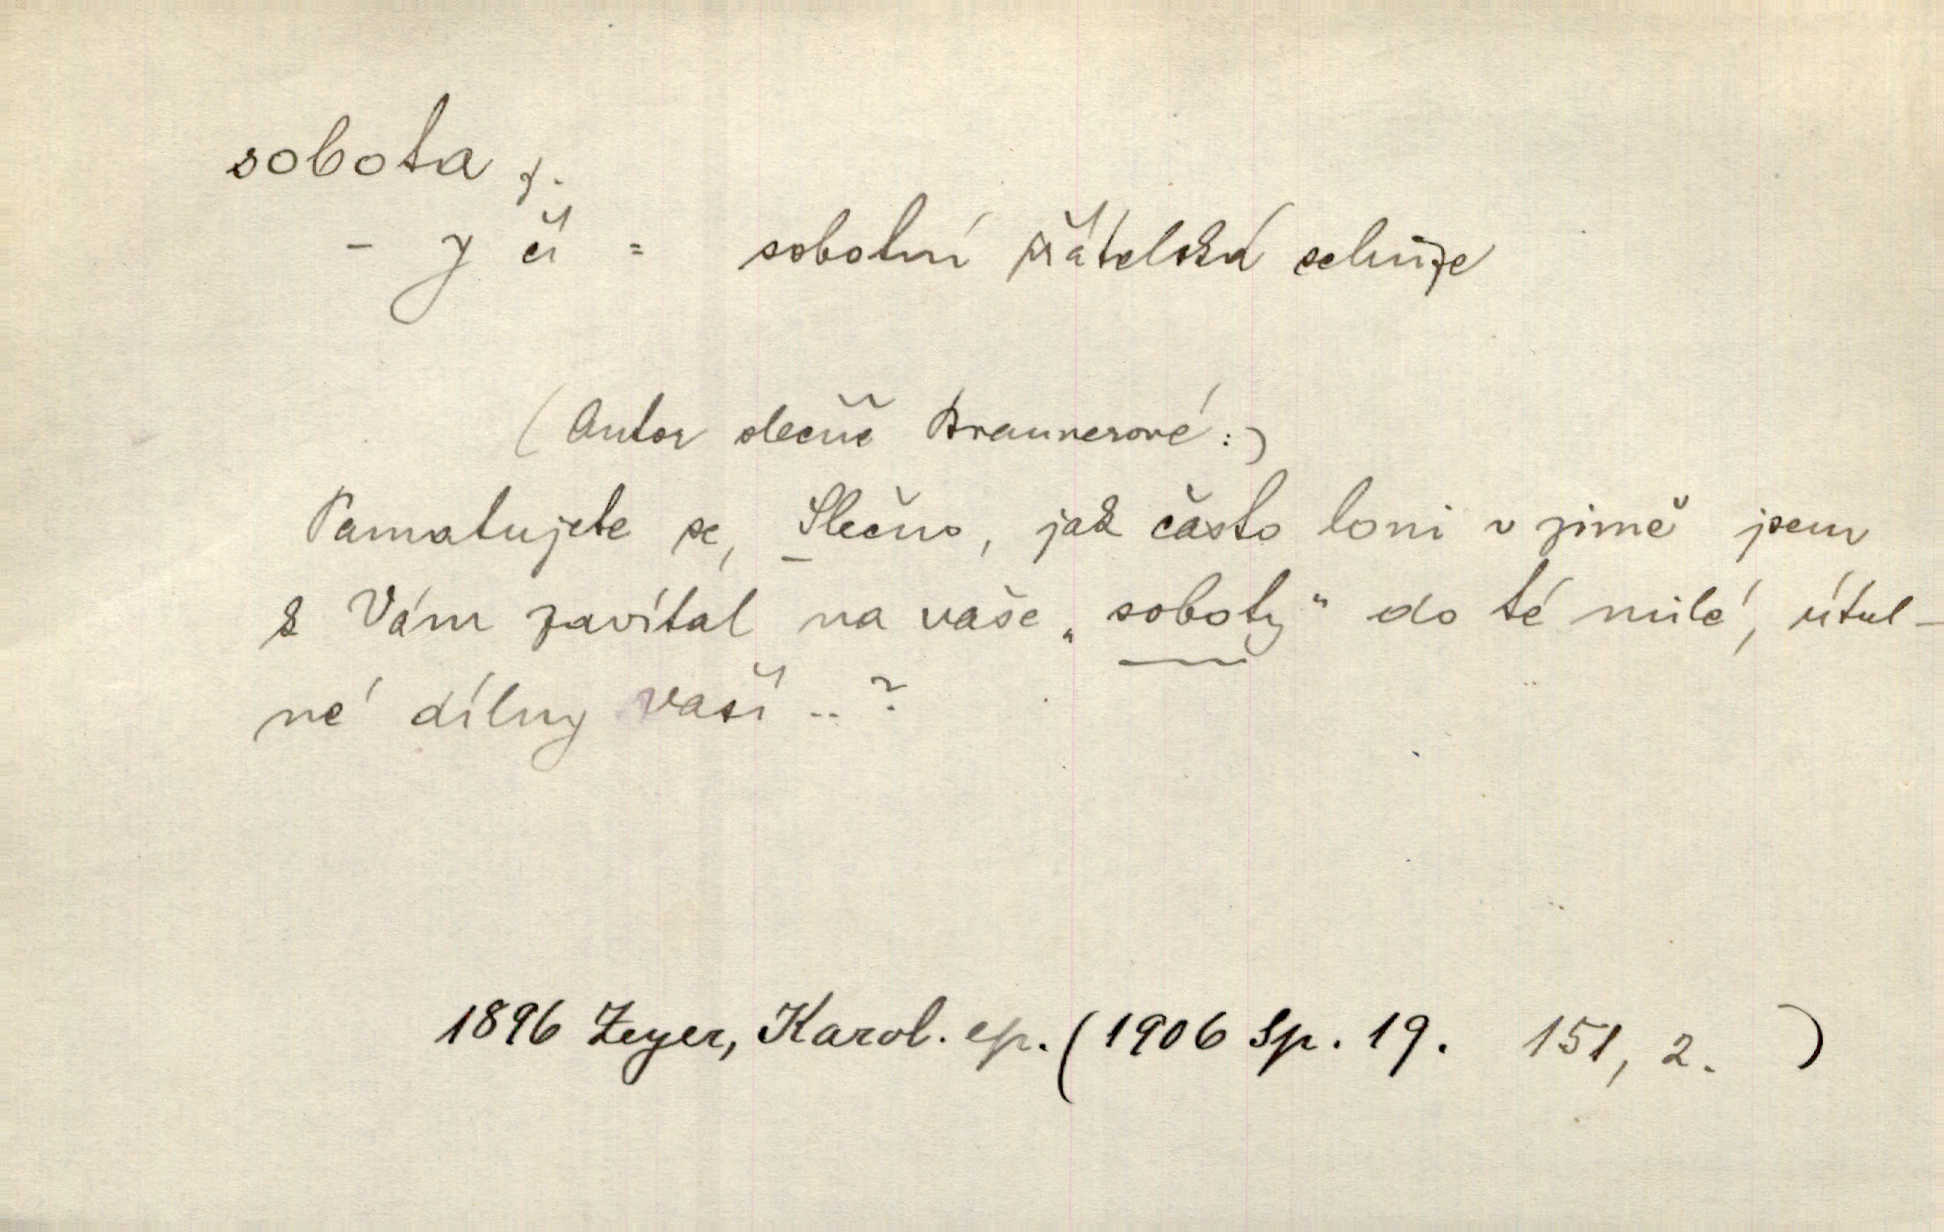 sobota f.
- y čí = sobotní přátelská schůze
(Autor slečně Braunerové:)
Pamatujete se, Slečno, jak často loni v zimě jsem
k Vám zavítal na vaše „soboty" do té milé, útul-
né dílny vaší ..?
1896 Zeyer, Karol. ep. (1906 Sp. 19. 151, 2. )